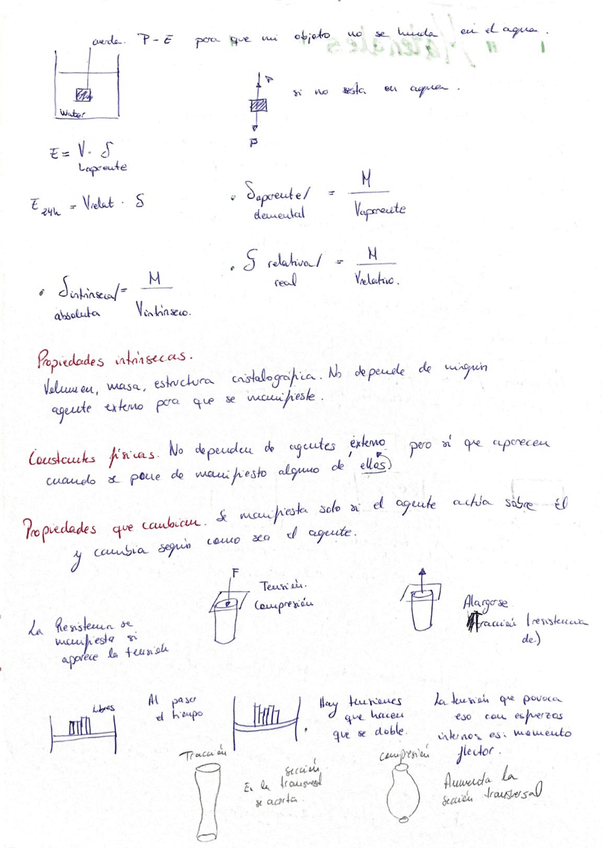 cuerda. P-E para que mi objeto no se hunda en el agua.
Water
si no esta en agua.
P
E = V aparente · δ
E 24h = Vrelat · δ
• δ aparente/elemental = M / Vaparente
• δ relativa/real = M / Vrelativo.
• δ intrínseca/absoluta = M / Vintrínseco.
Propiedades intrínsecas.
Volumen, masa, estructura cristalográfica. No depende de ningún
agente externo para que se manifieste.
Constantes físicas. No dependen de agentes externo pero sí que aparecen
cuando se pone de manifiesto alguno de ellos
Propiedades que cambian. Se manifiesta solo si el agente actúa sobre él
y cambia según como sea el agente.
F
Tensión.
Compresión
La Resistencia se
manifiesta si
aparece la tensión
Alargase
Tracción (resistencia
de)
Libros
Al pasar
el tiempo
Hay tensiones
que hacen
que se doble.
La tensión que provoca
eso con esfuerzos
internos es: momento
flector.
Tracción
En la sección
transversal
se acorta.
compresión
Aumenta la
sección transversal